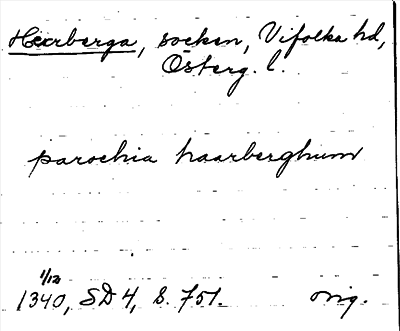 Herrberga, socken, Vifolka hd,
Österg. l.
parochia haarberghum
1/12
1340, SD 4, S. 751. orig.